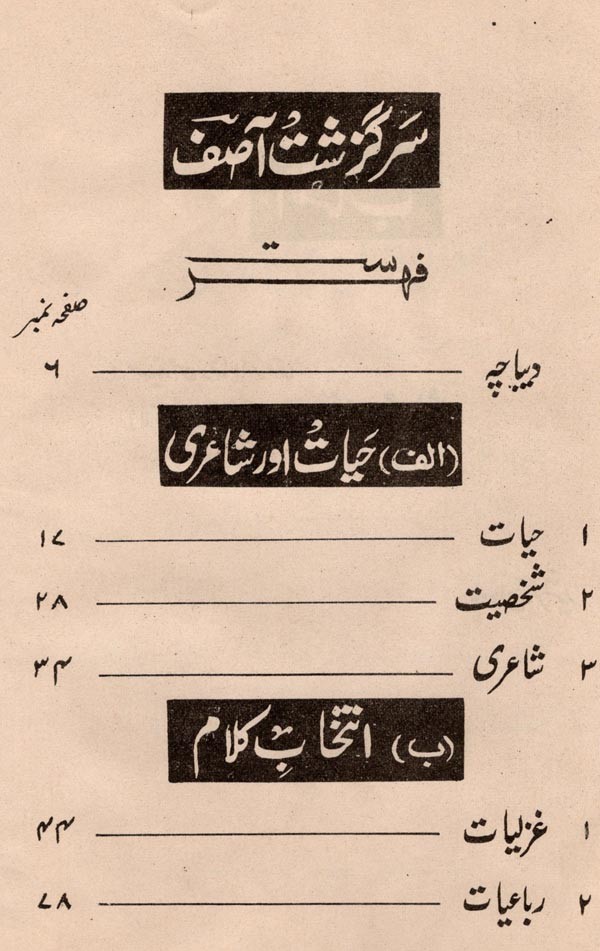 سرگزشت آصف
فہرست
صفحہ نمبر
دیباچہ ۶
(الف) حیات اور شاعری
۱ حیات ۱۷
۲ شخصیت ۲۸
۳ شاعری ۳۴
(ب) انتخابِ کلام
۱ غزلیات ۴۴
۲ رباعیات ۷۸